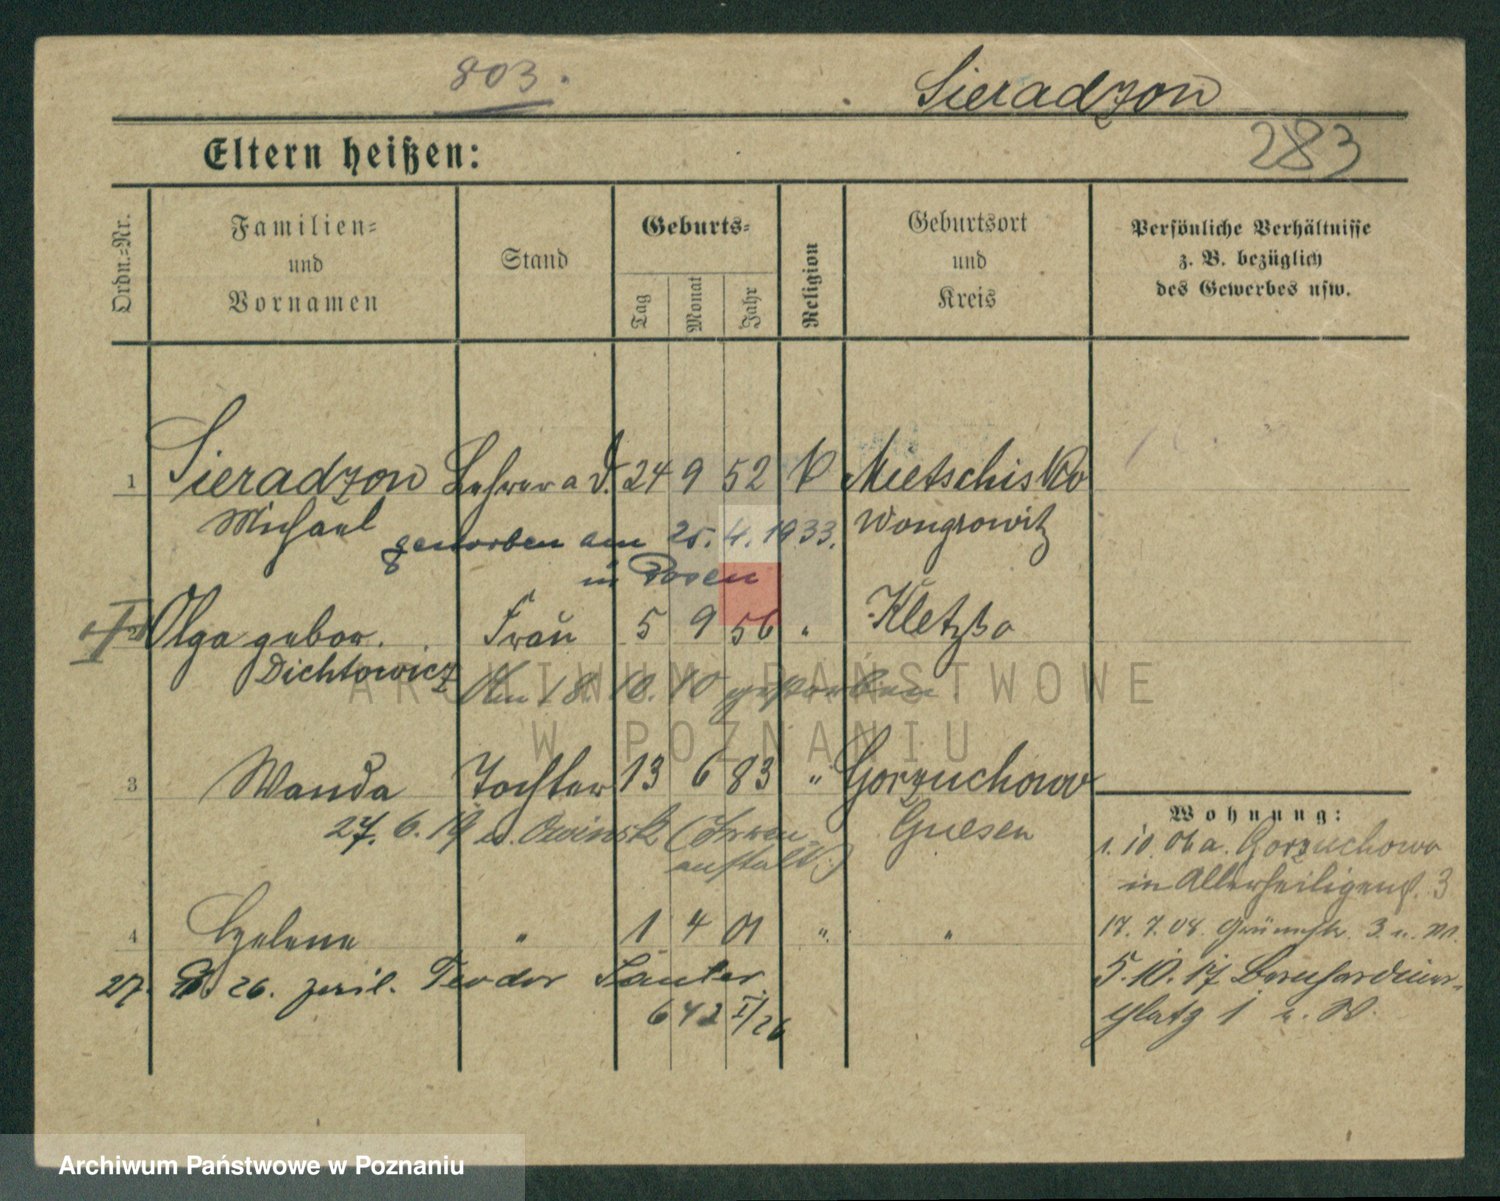 803.
Sieradzon
283
Eltern heißen:
Ordn.-Nr.
Familien-
und
Vornamen
Stand
Geburts-
Tag
Monat
Jahr
Religion
Geburtsort
und
Kreis
Persönliche Verhältnisse
z. B. bezüglich
des Gewerbes usw.
1 Sieradzon Lehrer a D. 24 9 52 K Mietschisko
Michael Wongrowitz
gestorben am 25. 4. 1933.
in Posen
Olga gebor. Frau 5 9 56 " Kletzko
Dichtowicz
Am 18. 10. 10 gestorben
3 Wanda Tochter 13 6 83 " Gorzuchowo
Gnesen
27. 6. 19 n. Owinsk (Irren-
anstalt)
4 Helene " 1 4 01 " "
27. 26. Teodor Sauter
642 I/26
Wohnung:
1. 10. 06 a. Gorzuchowo
in Allerheiligenst. 3
17. 7. 08. Grünestr. 3 u. M.
5. 10. 17 Bernhardiner-
platz 1 u. W.
ARCHIWUM PAŃSTWOWE
W POZNANIU
Archiwum Państwowe w Poznaniu